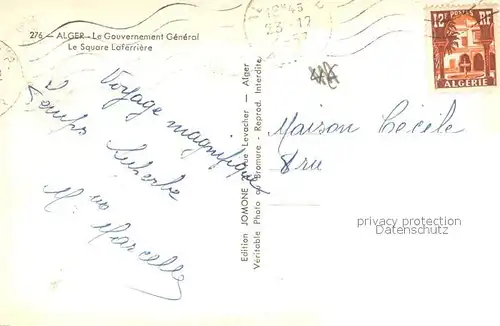 276 — ALGER - Le Gouvernement Général
Le Square Laferrière
Voyage magnifique
Temps superbe
Marcelle
Edition JOMONE - Rue Levacher — Alger
Véritable Photo au Bromure - Reprod. Interdite
12F POSTES RF
ALGERIE
Maison Cécile
privacy protection
Datenschutz